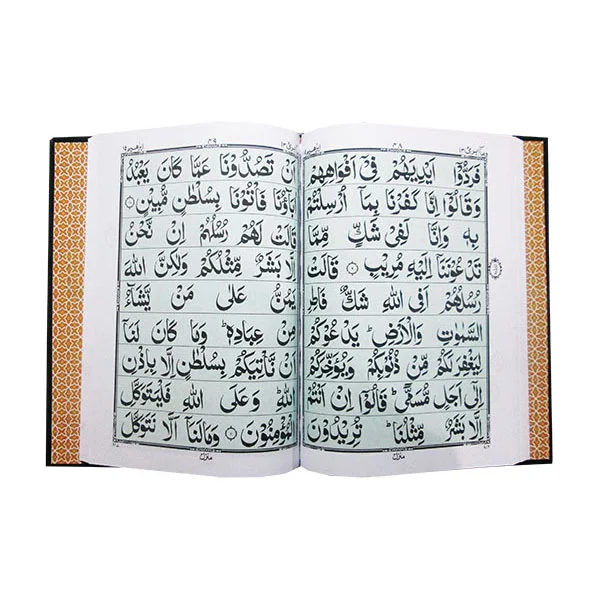 فَرَدُّوْۤا اَيْدِيَهُمْ فِيْۤ اَفْوَاهِهِمْ
وَقَالُوْۤا اِنَّا كَفَرْنَا بِمَاۤ اُرْسِلْتُمْ
بِهٖ وَاِنَّا لَفِيْ شَكٍّ مِّمَّا
تَدْعُوْنَنَاۤ اِلَيْهِ مُرِيْبٍ ۹ قَالَتْ
رُسُلُهُمْ اَفِي اللّٰهِ شَكٌّ فَاطِرِ
السَّمٰوٰتِ وَالْاَرْضِ ؕ يَدْعُوْكُمْ
لِيَغْفِرَ لَكُمْ مِّنْ ذُنُوْبِكُمْ وَيُؤَخِّرَكُمْ
اِلٰۤى اَجَلٍ مُّسَمًّى ؕ قَالُوْۤا اِنْ اَنْتُمْ
اِلَّا بَشَرٌ مِّثْلُنَا ؕ تُرِيْدُوْنَ
اَنْ تَصُدُّوْنَا عَمَّا كَانَ يَعْبُدُ
اٰبَآؤُنَا فَاْتُوْنَا بِسُلْطٰنٍ مُّبِيْنٍ ۱۰
قَالَتْ لَهُمْ رُسُلُهُمْ اِنْ نَّحْنُ
اِلَّا بَشَرٌ مِّثْلُكُمْ وَلٰكِنَّ اللّٰهَ
يَمُنُّ عَلٰى مَنْ يَّشَآءُ
مِنْ عِبَادِهٖ ؕ وَمَا كَانَ لَنَاۤ
اَنْ نَّاْتِيَكُمْ بِسُلْطٰنٍ اِلَّا بِاِذْنِ
اللّٰهِ ؕ وَعَلَى اللّٰهِ فَلْيَتَوَكَّلِ
الْمُؤْمِنُوْنَ ۱۱ وَمَا لَنَاۤ اَلَّا نَتَوَكَّلَ